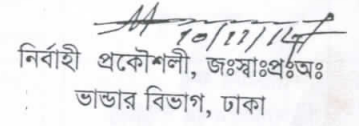 10/11/14
নির্বাহী প্রকৌশলী, জঃস্বাঃপ্রঃঅঃ
ভান্ডার বিভাগ, ঢাকা